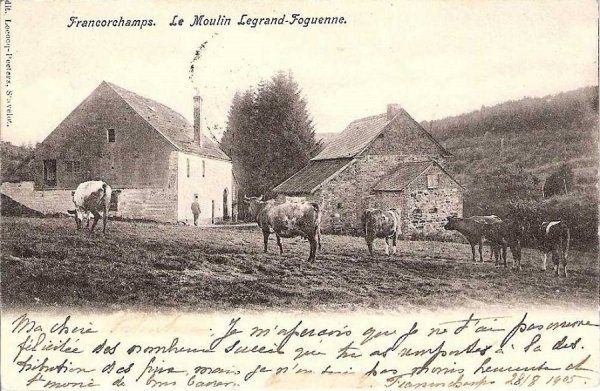 Francorchamps. Le Moulin Legrand-Foguenne.
dit. Lecocq-Peeters, Stavelot.
Ma chère Je m'aperçois que je ne t'ai pas encore
félicitée des nombreux succès que tu as remportés à la des.
tribution des prix, mais je n'en suis pas moins heureuse et
de
Francorchamps 28/8 1905.